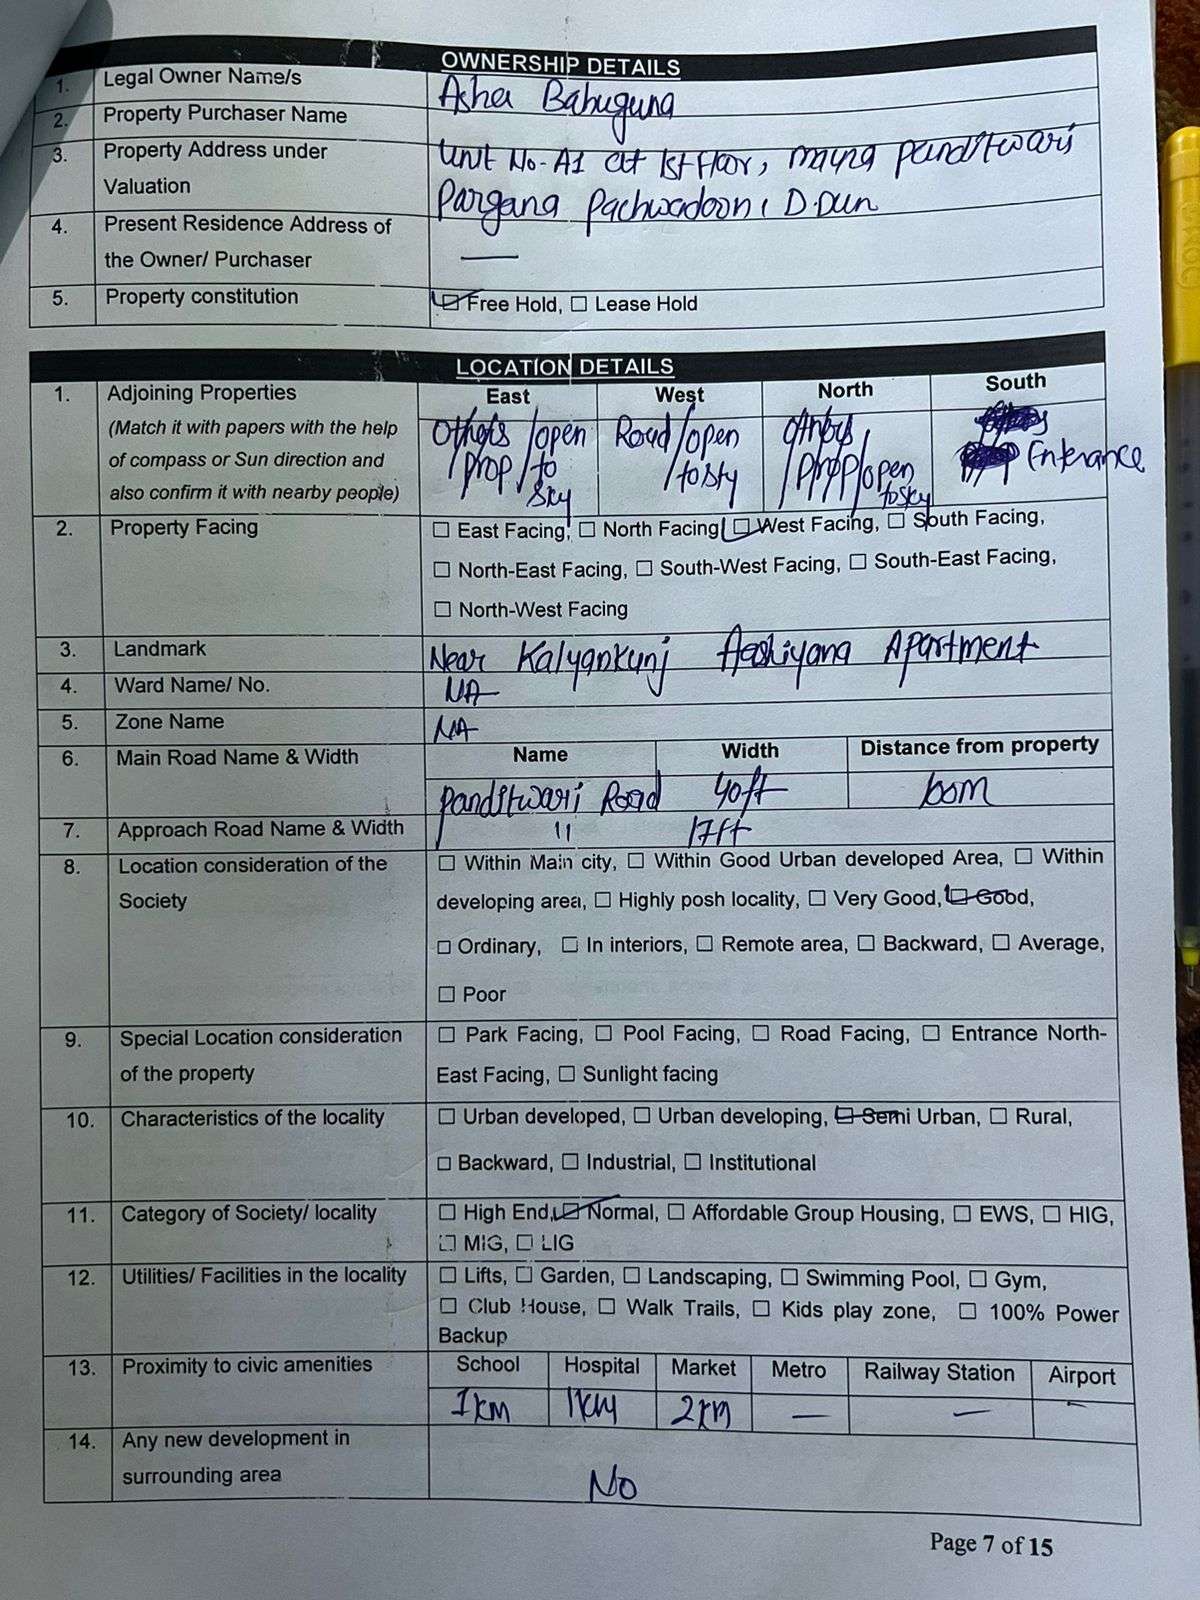 OWNERSHIP DETAILS
1. Legal Owner Name/s Asha Bahuguna
2. Property Purchaser Name
3. Property Address under Unit No-A1 at 1st Floor, mauza panditwari
Valuation Pargana Pachwadoon, D.Dun
4. Present Residence Address of
the Owner/ Purchaser —
5. Property constitution ☑ Free Hold, ☐ Lease Hold
LOCATION DETAILS
1. Adjoining Properties East West North South
(Match it with papers with the help Others /open Road/open others
of compass or Sun direction and /prop /to /to sky /prop/open Entrance
also confirm it with nearby people) sky to sky
2. Property Facing ☐ East Facing, ☐ North Facing ☑ West Facing, ☐ South Facing,
☐ North-East Facing, ☐ South-West Facing, ☐ South-East Facing,
☐ North-West Facing
3. Landmark Near Kalyankunj Aashiyana Apartment
4. Ward Name/ No. NA
5. Zone Name NA
6. Main Road Name & Width Name Width Distance from property
Panditwari Road 40ft
7. Approach Road Name & Width 11 17ft
8. Location consideration of the ☐ Within Main city, ☐ Within Good Urban developed Area, ☐ Within
Society developing area, ☐ Highly posh locality, ☐ Very Good, ☑ Good,
☐ Ordinary, ☐ In interiors, ☐ Remote area, ☐ Backward, ☐ Average,
☐ Poor
9. Special Location consideration ☐ Park Facing, ☐ Pool Facing, ☐ Road Facing, ☐ Entrance North-
of the property East Facing, ☐ Sunlight facing
10. Characteristics of the locality ☐ Urban developed, ☐ Urban developing, ☑ Semi Urban, ☐ Rural,
☐ Backward, ☐ Industrial, ☐ Institutional
11. Category of Society/ locality ☐ High End, ☑ Normal, ☐ Affordable Group Housing, ☐ EWS, ☐ HIG,
☐ MIG, ☐ LIG
12. Utilities/ Facilities in the locality ☐ Lifts, ☐ Garden, ☐ Landscaping, ☐ Swimming Pool, ☐ Gym,
☐ Club House, ☐ Walk Trails, ☐ Kids play zone, ☐ 100% Power
Backup
13. Proximity to civic amenities School Hospital Market Metro Railway Station Airport
1km 1km 2km — — -
14. Any new development in
surrounding area No
Page 7 of 15